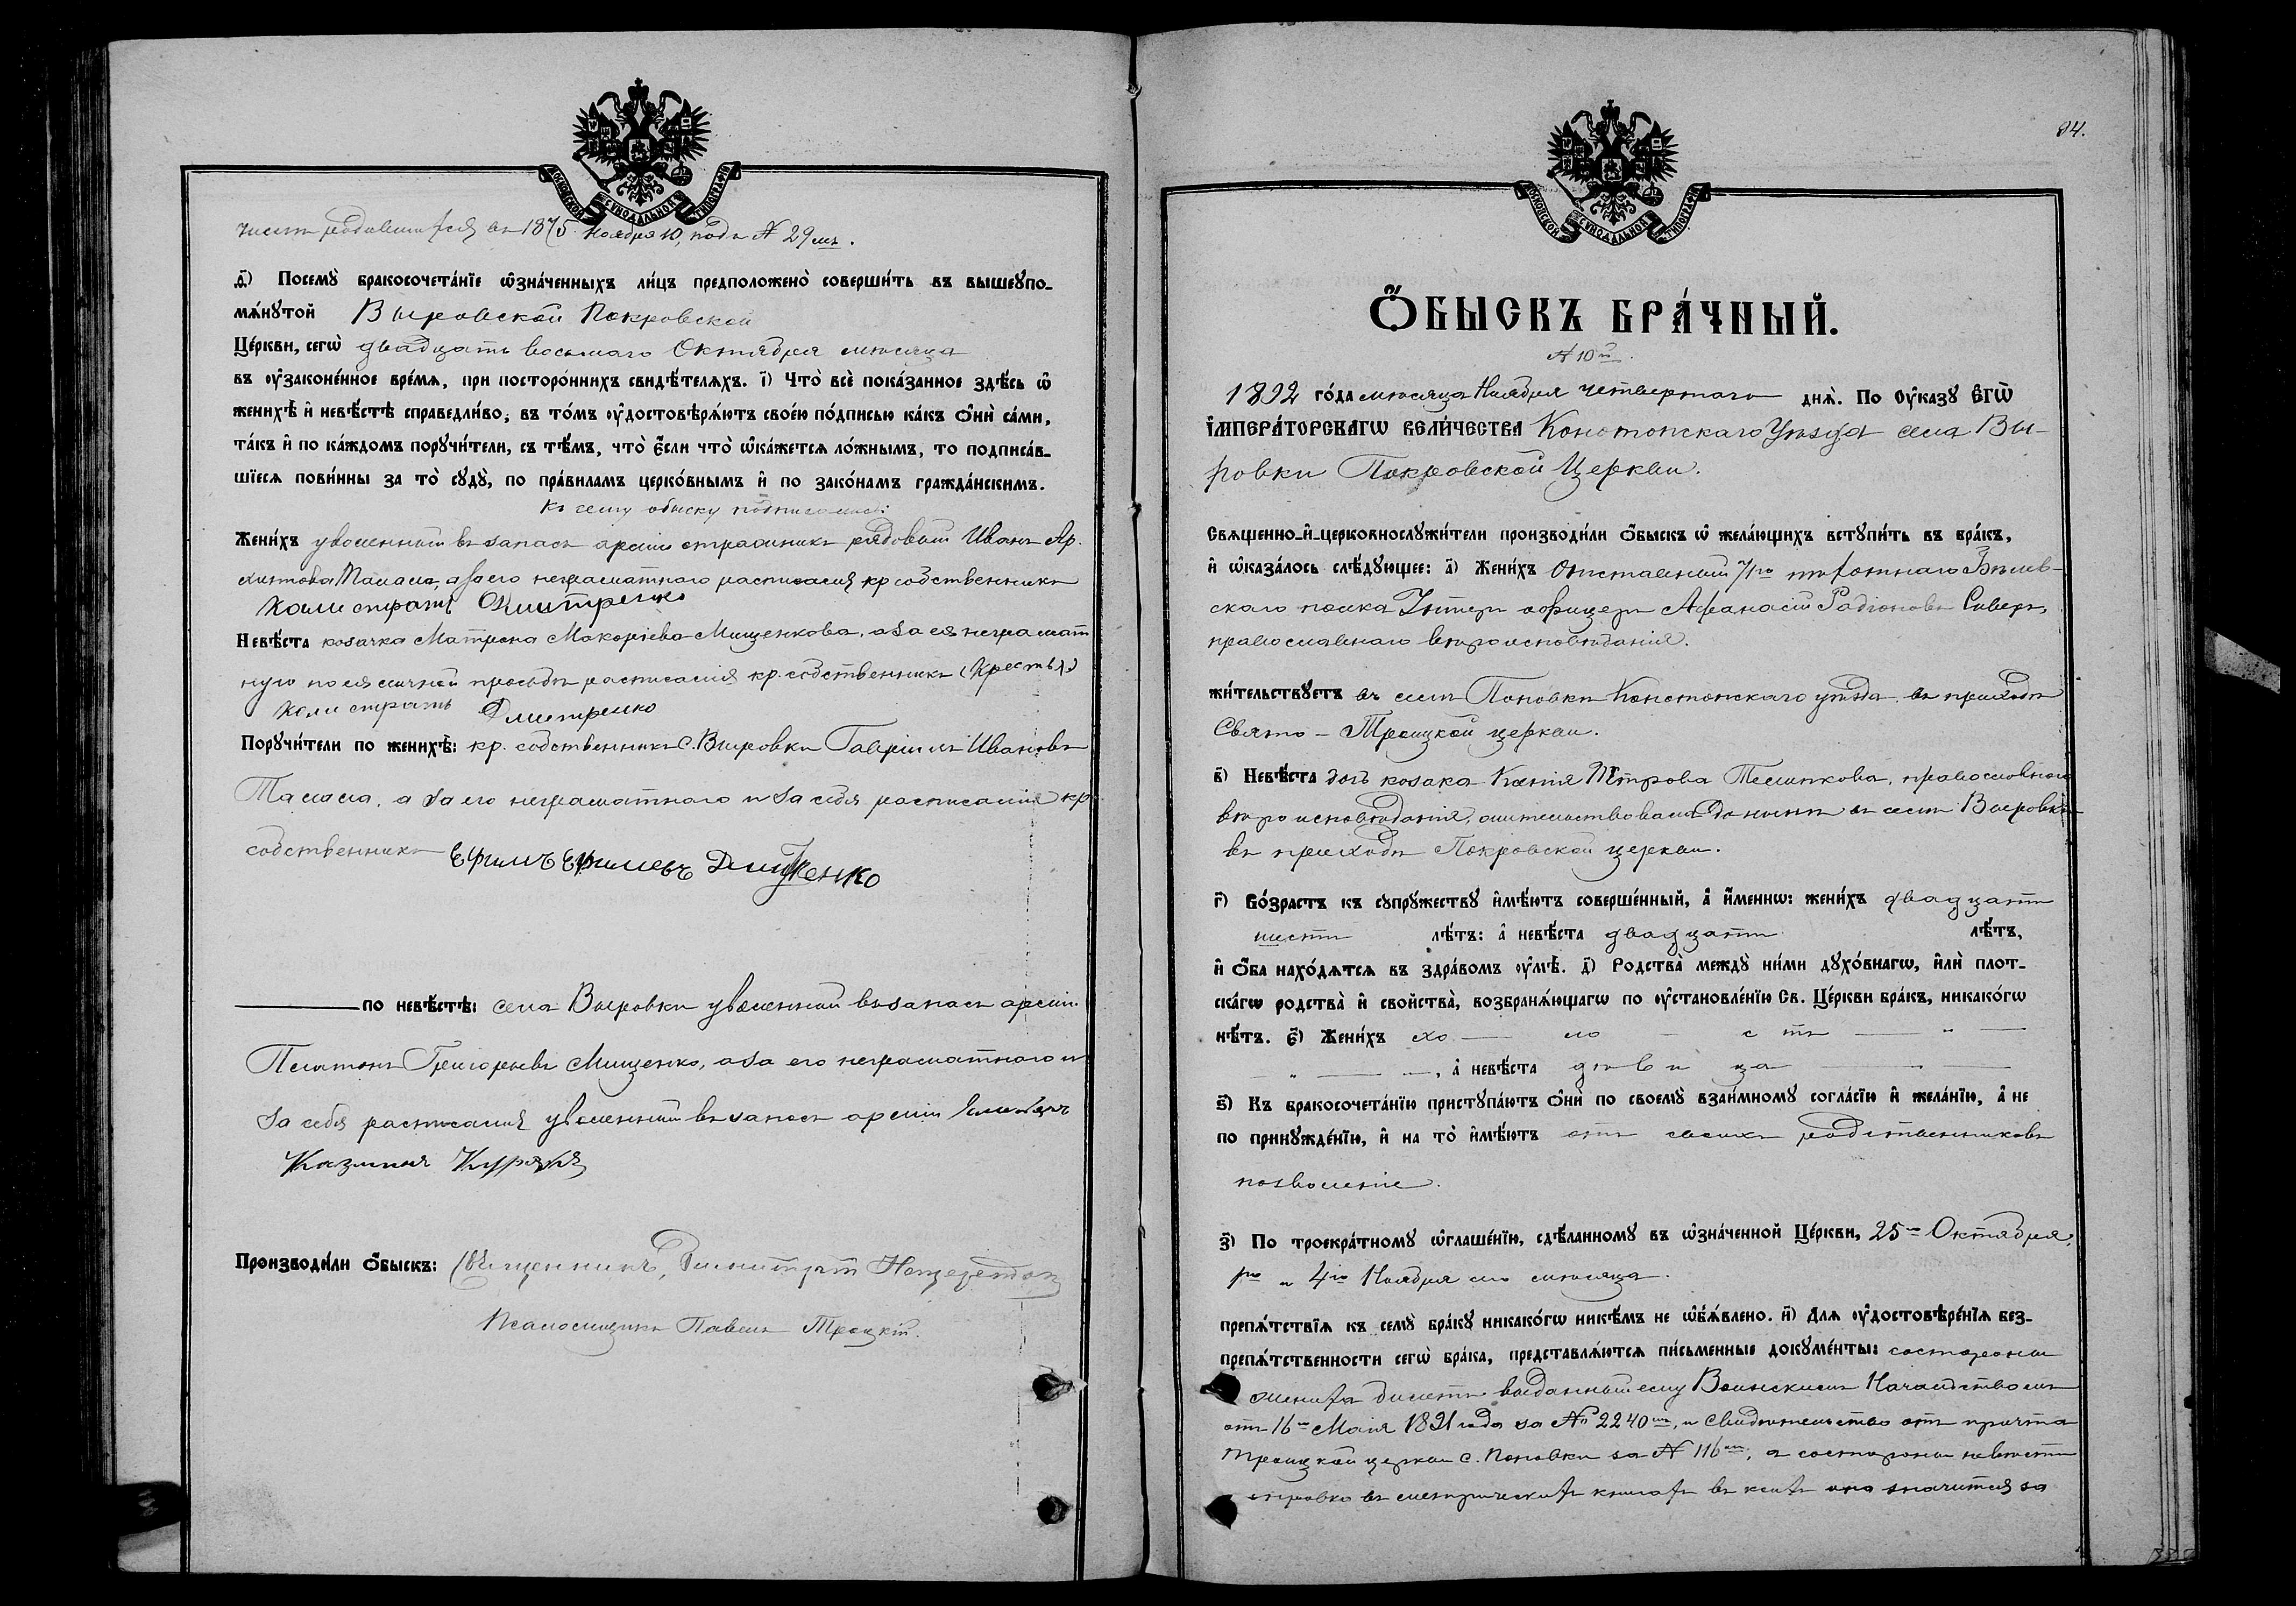 МОСКОВСКОЙ СѴНОДАЛЬНОЙ ТИПОГРАФІИ
числѣ родившихся въ 1875 Ноября 10, подъ № 29мъ.
д҃) Посемꙋ̀ бракосочета́нїе ѡ҆зна́ченныхъ ли́цъ предположено̀ соверши́ть въ вышеꙋпо-
мѧ́нꙋтой Выровской Покровской
Це́ркви, сегѡ̀ двадцать восьмаго Октября мѣсяца
въ ᲂу҆законе́нное вре́мѧ, при посторо́ннихъ свидѣ́телѧхъ. і҃) Что̀ всѐ пока́занное здѣ́сь ѡ҆
женихѣ̀ и҆ невѣ́стѣ справедли́во, въ то́мъ ᲂу҆достовѣрѧ́ютъ свое́ю по́дписью ка́къ ѻ҆нѝ са́ми,
та́къ и҆ по ка́ждомъ порꙋчи́тели, съ тѣ́мъ, что̀ є҆́сли что̀ ѡ҆ка́жетсѧ ло́жнымъ, то подписа́в-
шїесѧ пови́нны за то̀ сꙋдꙋ̀, по пра́виламъ церко́внымъ и҆ по зако́намъ гражда́нскимъ.
Къ сему обыску подписались:
Жени́хъ уволенный въ запасъ арміи стражникъ рядовый Иванъ Ар.
хиповъ а за его неграматнаго расписался кр. собственникъ
Калистратъ Дмитренко
Невѣ́ста козачка Матрена Макаріева Мищенкова, а за ея неграмат
ную по ея личной просьбѣ расписался кр. собственникъ (Крестья)
Калистратъ Дмитренко
Порꙋчи́тели по женихѣ̀: кр. собственникъ с. Выровки Гавріилъ Ивановъ
а за его неграматнаго и за себя расписался кр.
собственникъ Ефимъ Ефимевъ Дмитренко
по невѣ́стѣ: села Выровки уволенный въ запасъ арміи
Платонъ Григорьевъ Мищенко, а за его неграматнаго и
за себя расписался уволенный въ запасъ арміи
Производи́ли ѻ҆́быскъ: Священникъ, Димитрій
Псаломщикъ Павелъ Троцкій.
84.
МОСКОВСКОЙ СѴНОДАЛЬНОЙ ТИПОГРАФІИ
Ѻ҆́БЫСКЪ БРА́ЧНЫЙ.
№ 10й.
1892 го́да мѣсяца Ноября четвертаго днѧ̀. По ᲂу҆ка́зꙋ Є҆ГѠ̀
І҆МПЕРА́ТОРСКАГѠ ВЕЛИ́ЧЕСТВА Конотопскаго Уѣзда села Вы-
ровки Покровской Церкви.
Свѧще́нно-и҆-церковнослꙋжи́тели производи́ли ѻ҆́быскъ ѡ҆ жела́ющихъ встꙋпи́ть въ бра́къ,
и҆ ѡ҆каза́лось слѣ́дꙋющее: а҃) Жени́хъ Отставный 71го пѣхотнаго Бѣлев-
скаго полка Унтеръ офицеръ Афанасій Радіоновъ Сиверъ,
православнаго вѣроисповѣданія.
жи́тельствꙋетъ въ селѣ Поповки Конотопскаго уѣзда въ приходѣ
Свято-Троицкой церкви.
в҃) Невѣ́ста дочь козака Ксенія Петрова православнаго
вѣроисповѣданія, жительствовала до нынѣ въ селѣ Выровкѣ
въ приходѣ Покровской церкви.
г҃) Во́зрастъ къ сꙋпрꙋ́жествꙋ и҆мѣ́ютъ соверше́нный, а҆ и҆́меннѡ: жени́хъ двадцати
шести лѣ́тъ: а҆ невѣ́ста двадцати лѣ́тъ,
и҆ ѻ҆́ба нахо́дѧтсѧ въ здра́вомъ ᲂу҆мѣ̀. д҃) Родства̀ междꙋ̀ ни́ми дꙋхо́внагѡ, и҆лѝ плот-
ска́гѡ родства̀ и҆ сво́йства̀, возбранѧ́ющагѡ по ᲂу҆становле́нїю Св. Це́ркви бра́къ, никако́гѡ
нѣ́тъ. є҃) Жени́хъ хо — ло с тъ — " —
— " — —, а҆ невѣ́ста дѣ в и ца —
ѕ҃) Къ бракосочета́нїю пристꙋпа́ютъ ѻ҆нѝ по своемꙋ̀ взаи́мномꙋ согла́сїю и҆ жела́нїю, а҆ не
по принꙋжде́нїю, и҆ на то̀ и҆мѣ́ютъ отъ своихъ родственниковъ
позволеніе.
з҃) По троекра́тномꙋ ѡ҆глаше́нїю, сдѣ́ланномꙋ въ ѡ҆зна́ченной Це́ркви, 25го Октября,
1го и 4го Ноября сего мѣсяца.
препѧ́тствїѧ къ семꙋ̀ бра́кꙋ никако́гѡ никѣ́мъ не ѡ҆бъѧ́влено. и҃) Длѧ ᲂу҆достовѣре́нїѧ без-
препѧ́тственности сегѡ̀ бра́ка, представлѧ́ютсѧ пи́сьменные докꙋме́нты: состороны
жениха билетъ выданный ему Воинскимъ Начальствомъ
отъ 16го Маія 1891 года за № 2240мъ, и свидѣтельство отъ причта
Троицкой церкви с. Поповки за № 116мъ; а состороны невѣсты
справка въ метрическихъ книгахъ въ коихъ она значится за